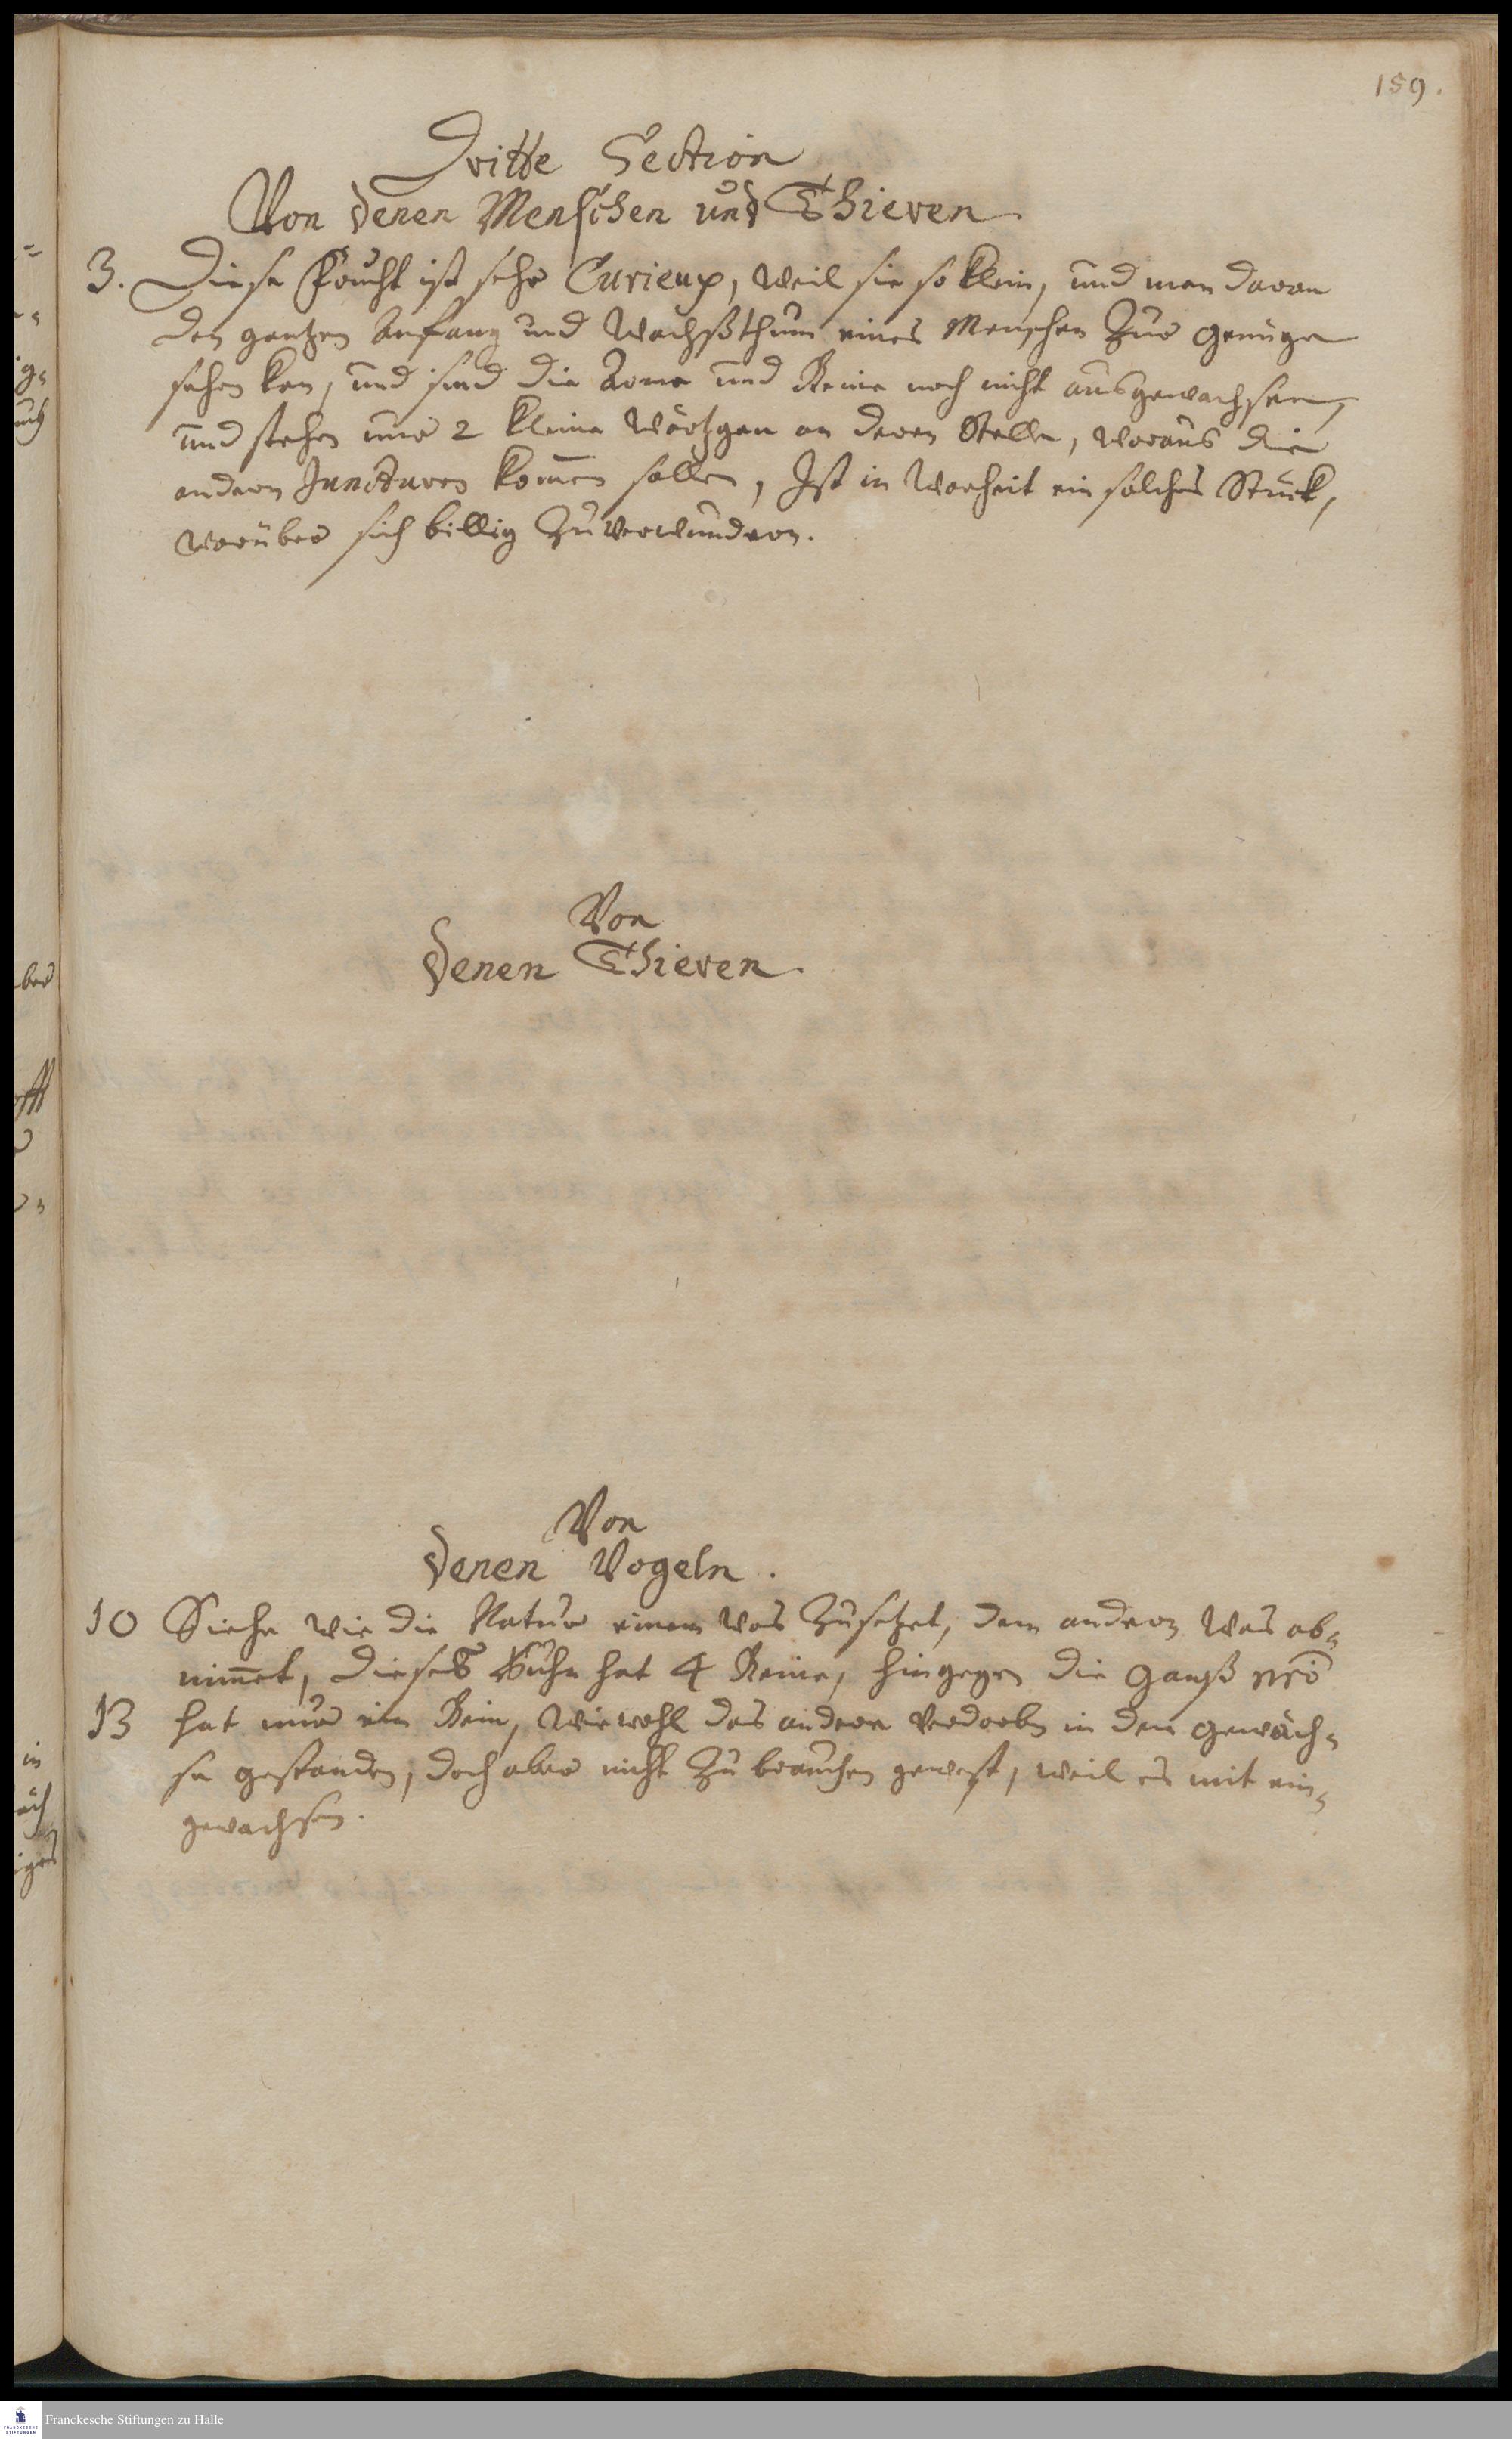 159.
Dritte Section
Von denen Menschen und Thieren.
3. Diese Frucht ist sehr Curieux, weil sie so klein, und man daran
den gantzen Anfang und Wachßthum eines Menschen zur genüge
sehen kan, und sind die Arme und Beine noch nicht ausgewachsen,
und stehen nur 2 kleine Wärtzgen an deren Stelle, woraus die
andern Juncturen kom̄en sollen, Ist in Warheit ein solches Stück,
worüber sich billig zu verwundern.
Von
denen Thieren.
Von
denen Vogeln.
10 Siehe wie die Natur einem was zusetzet, dem andern was ab-
nim̄et, dieses Huhn hat 4 Beine, hingegen die Ganß
13 hat nur ein Bein, wiewohl das andere verdorben in dem gewäch-
se gestanden, doch aber nicht zu brauchen gewest, weil es mit ein-
gewachsen.
ber
in
äch
iges
Franckesche Stiftungen zu Halle